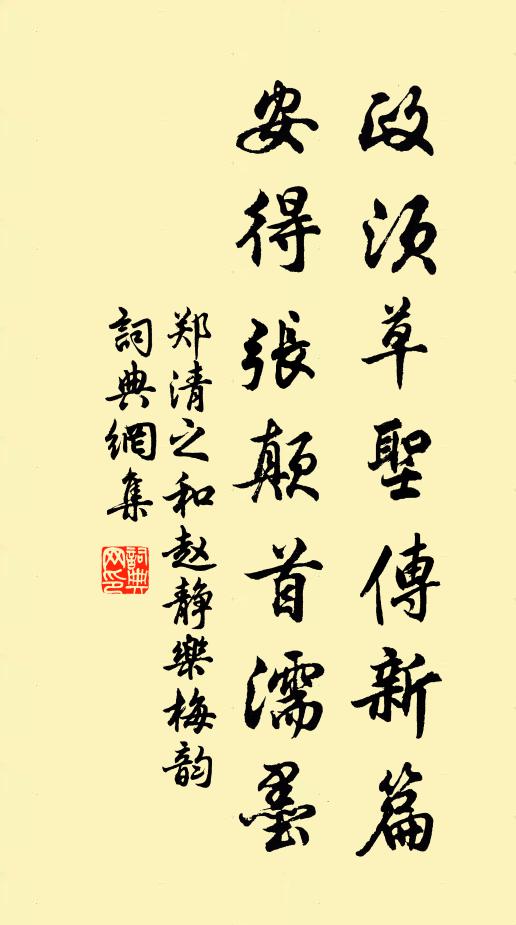 政须草聖傳新篇
安得張顛首濡墨
郑清之和赵静樂梅韵
詞典網集
詞典网印